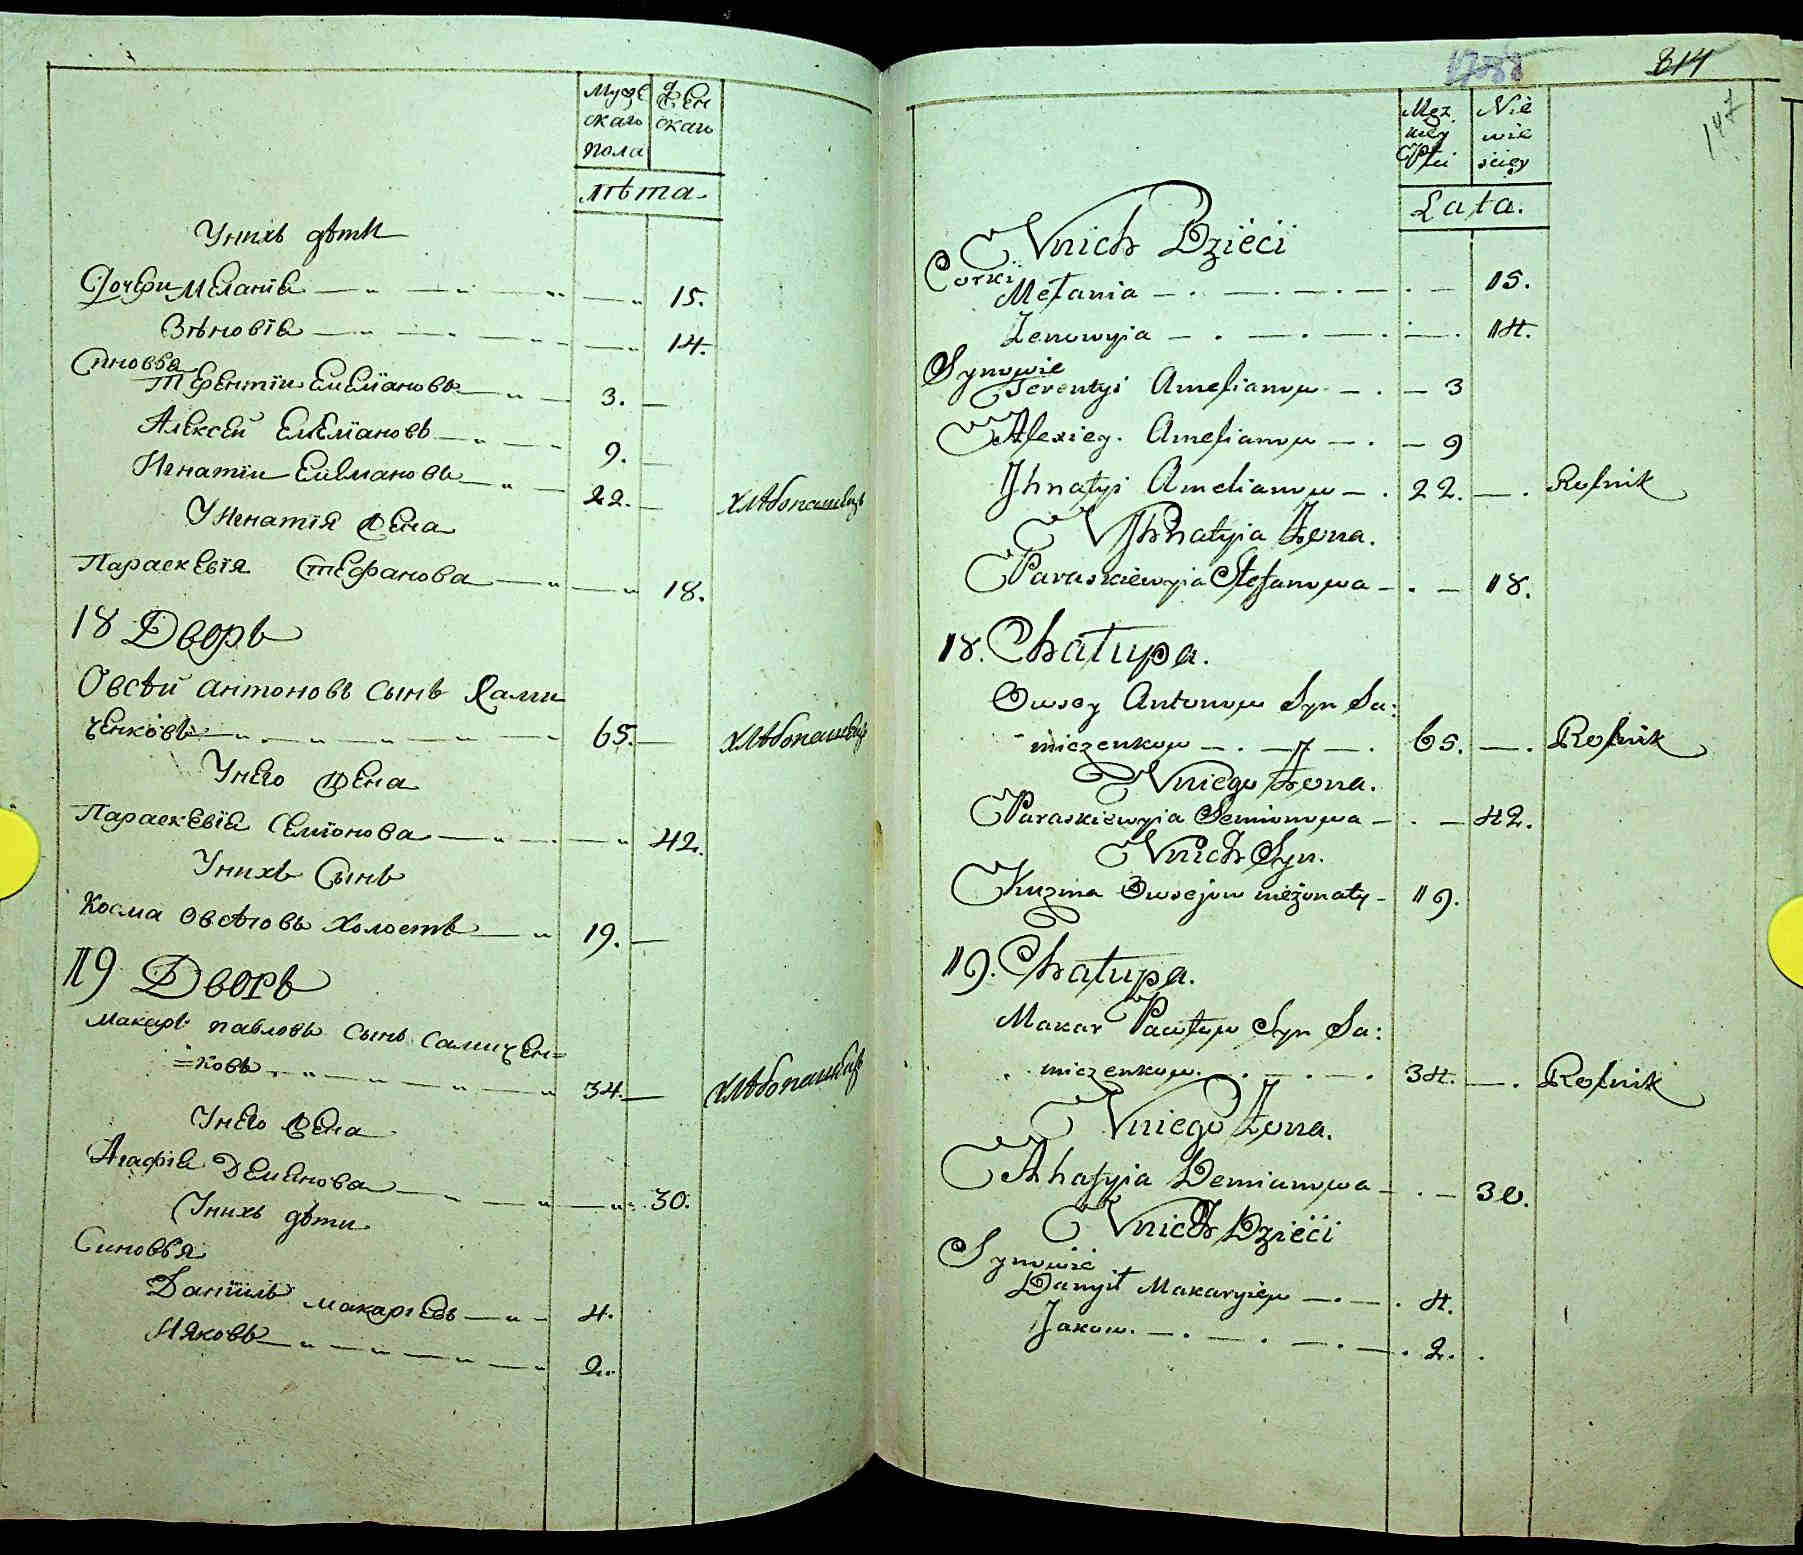 Мужескаго пола
Женскаго
лѣта
У нихъ дѣти
Дочери Меланія 15.
Зѣновія 14.
Сыновья
Терентіи Емеліановъ 3.
Алексѣй Емеліановъ 9.
Игнатіи Емельановъ 22. хлѣбопашецъ
У Игнатія Жена
Параскевія Стефанова 18.
18 Дворъ
Овсѣй Антоновъ сынъ Сами
ченковъ 65. хлѣбопашецъ
У него жена
Параскевія Семіонова 42.
У нихъ Сынъ
Косма Овсѣговъ Холостъ 19.
19 Дворъ
Макаръ Павловъ сынъ Самичен=
=ковъ 34. хлѣбопашецъ
У него Жена
Агафія Деміанова 30.
У нихъ дѣти
Синовья
Даніилъ Макаріевъ 4.
Ияковъ 2.
814
147
Męz
kiey
Płci
Nie
wie
ściey
Lata.
Vnich Dzieci
Corki
Mełania 15.
Zenowyia 14.
Synowie
Terentyi Amelianow 3
Alexiey. Amelianow 9
Jhnatyi Amelianow 22. Rolnik
V Jhnatyia Żona.
Paraskiewyia Stefanowa 18.
18. Chałupa.
Owsey Antonow Syn Sa:
miczenkow 65. Rolnik
Vniego Żona.
Paraskiewyia Semionowa 42.
Vnich Syn.
Kuzma Owsejow nieżonaty 19.
19. Chałupa.
Makar Pawłow Syn Sa:
miczenkow. 34. Rolnik
Vniego Żona.
Ahafyia Demianowa 30.
Vnich Dzieci
Synowie
Danyił Makaryiew 4.
Jakow. 2.